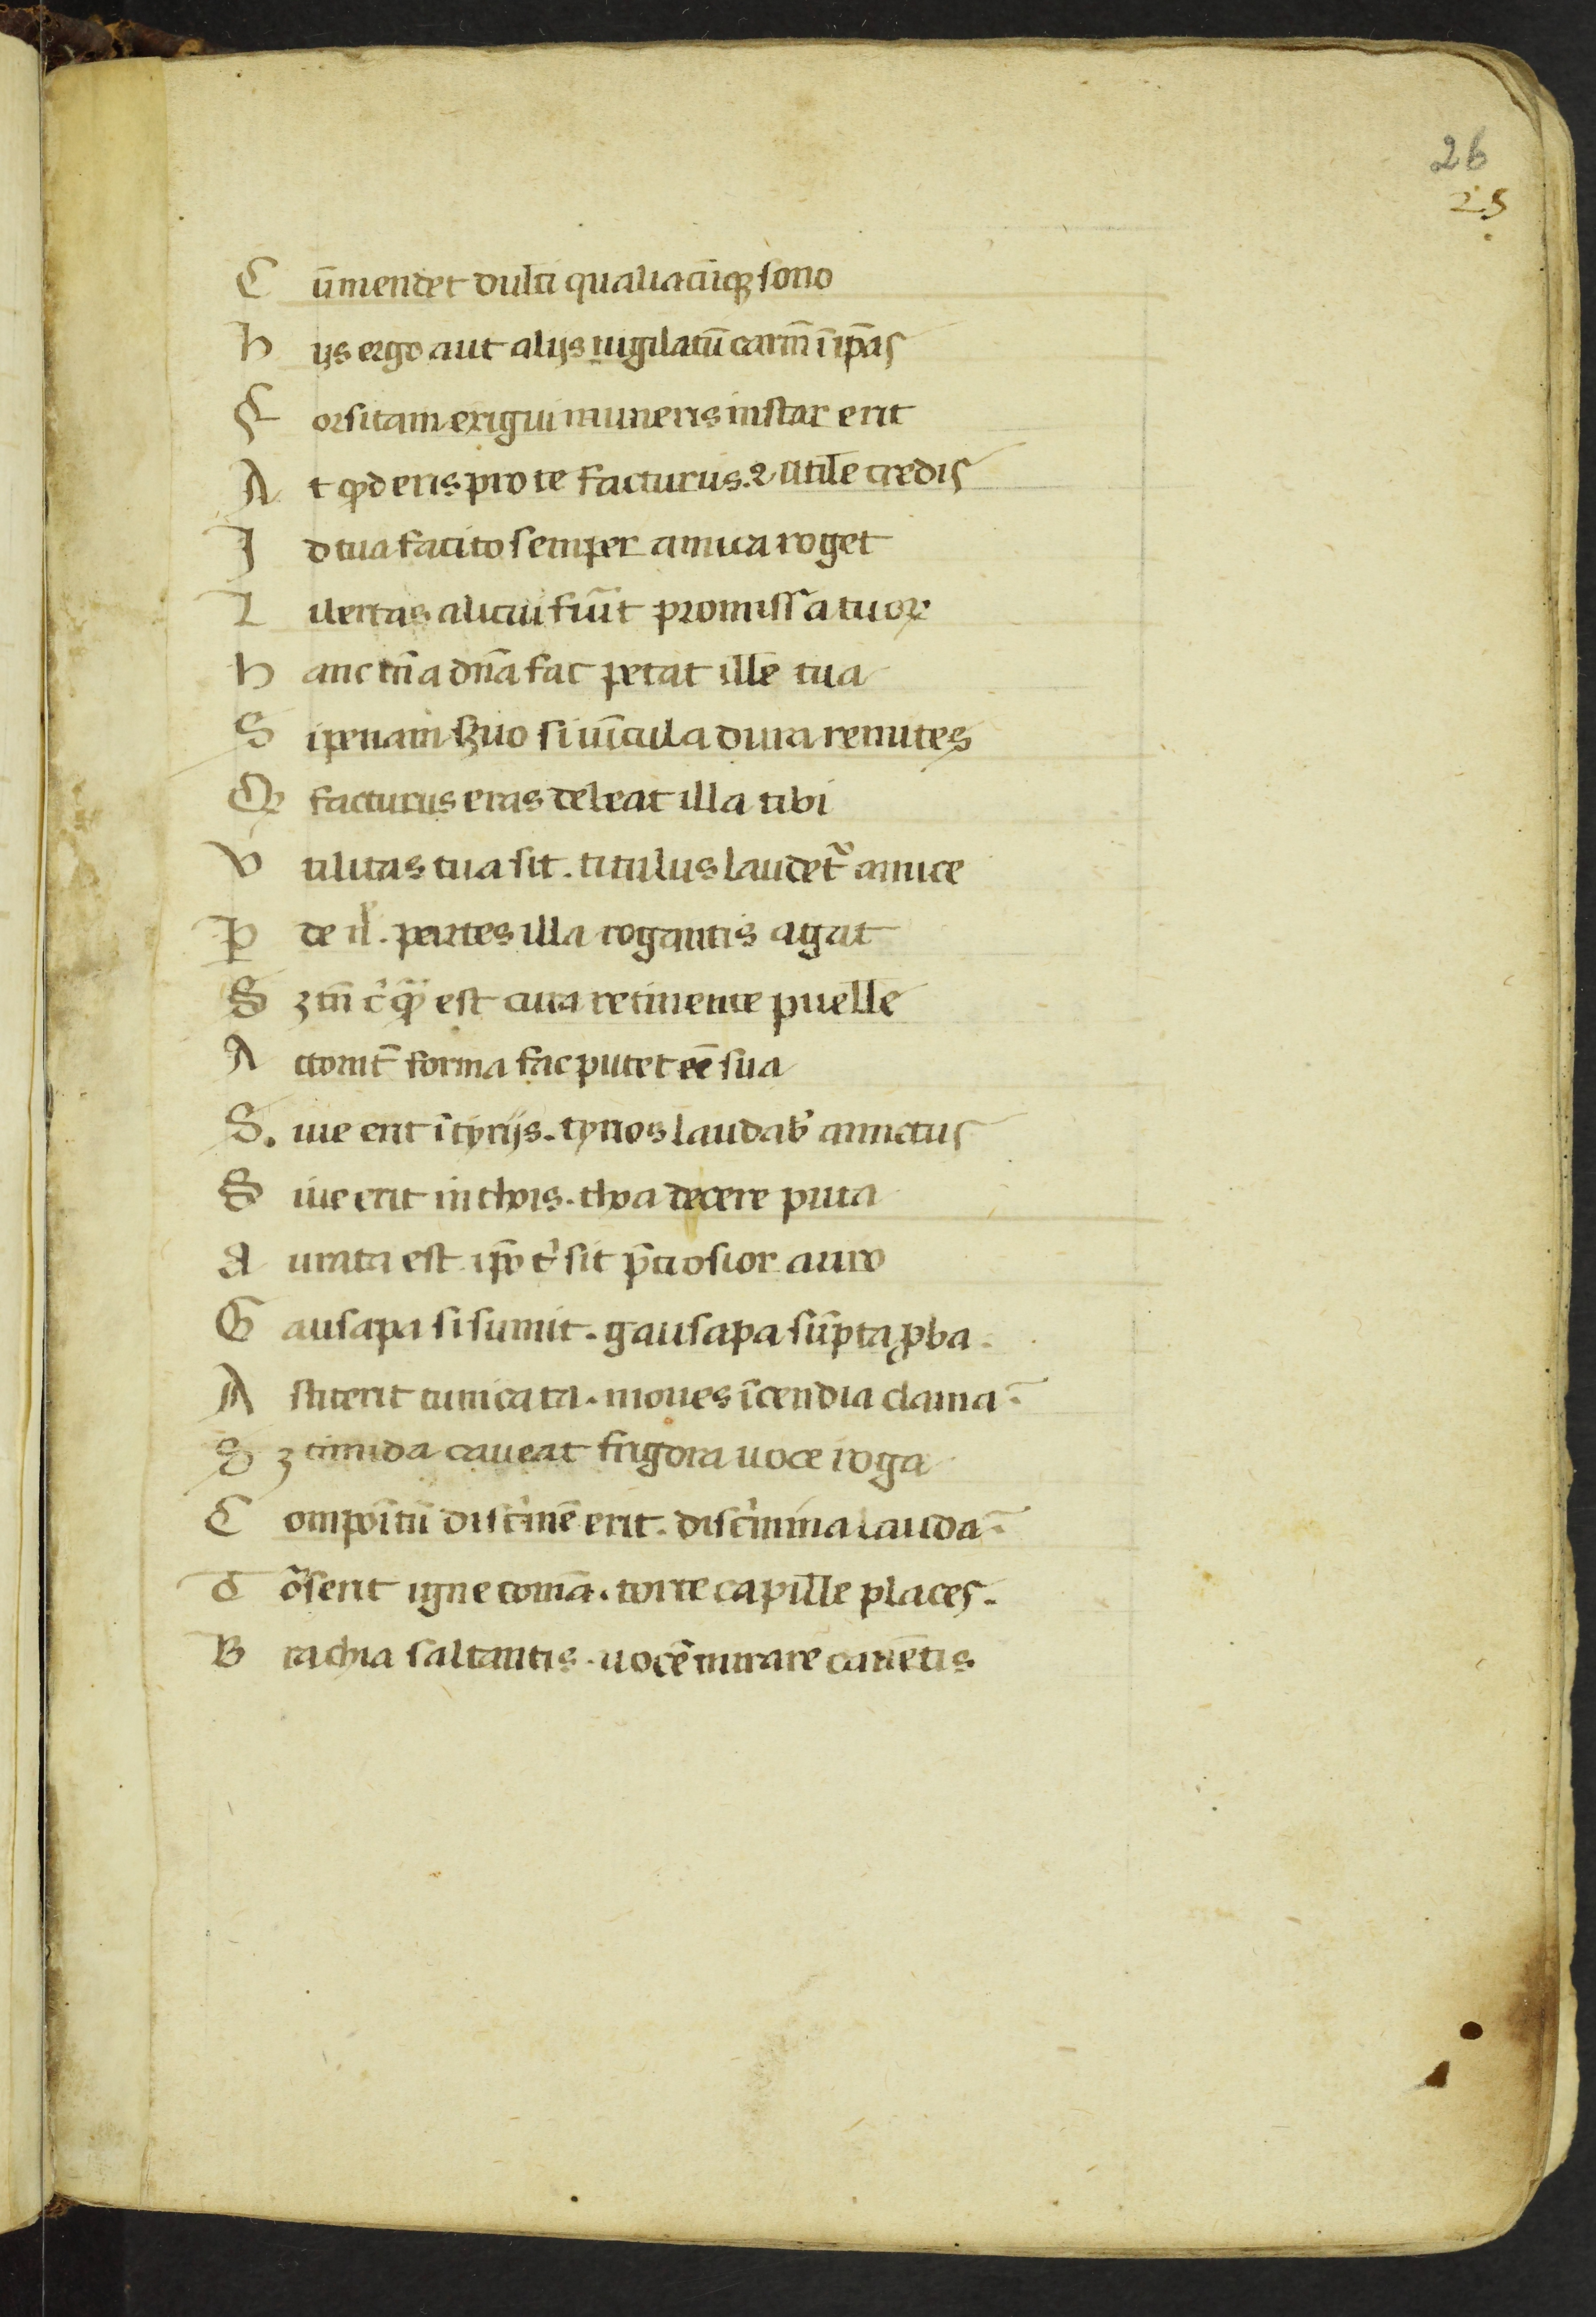 26
25
C ūmendet dulci qualiacūqꝫ sono
h ijs ergo aut alijs iugilatū carm̄ ī ip̄as
F orsitam exigui muneris instar erit
A t qd eris pro te facturus. ⁊ utile credis
I d tua facito semper amica roget
L ibertas alicui fiūt promissa tuoꝝ
h anc tn̄ a dn̄a fac petat ille tua
S i penam suo si uīcula dura remites
Q facturus eras debeat illa tibi
V tilitas tua sit . titulus laudet᷑ amice
P de il̓ . partes illa rogantis agat
S ꝫ tn̄ c̓ est cura retinente puelle
A ttonit̄ forma fac putet eē sua
S. iue erit ī tyrijs . tyrios laudab̓ amictus
S iue erit in chois . choa decere puta
A urata est ip̄o t̓ sit p̄tiosior auro
G ausapa si sumit . gausapa sūpta ꝓba .
A stiterit tunicata . moues īcendia clama .
S ꝫ timida caueat frigora uoce roga
C ompoītū disc̓mē erit . disc̓mina lauda .
T orserit igne comā . torte capille places .
B rachia saltantis . uocē mirare canētis